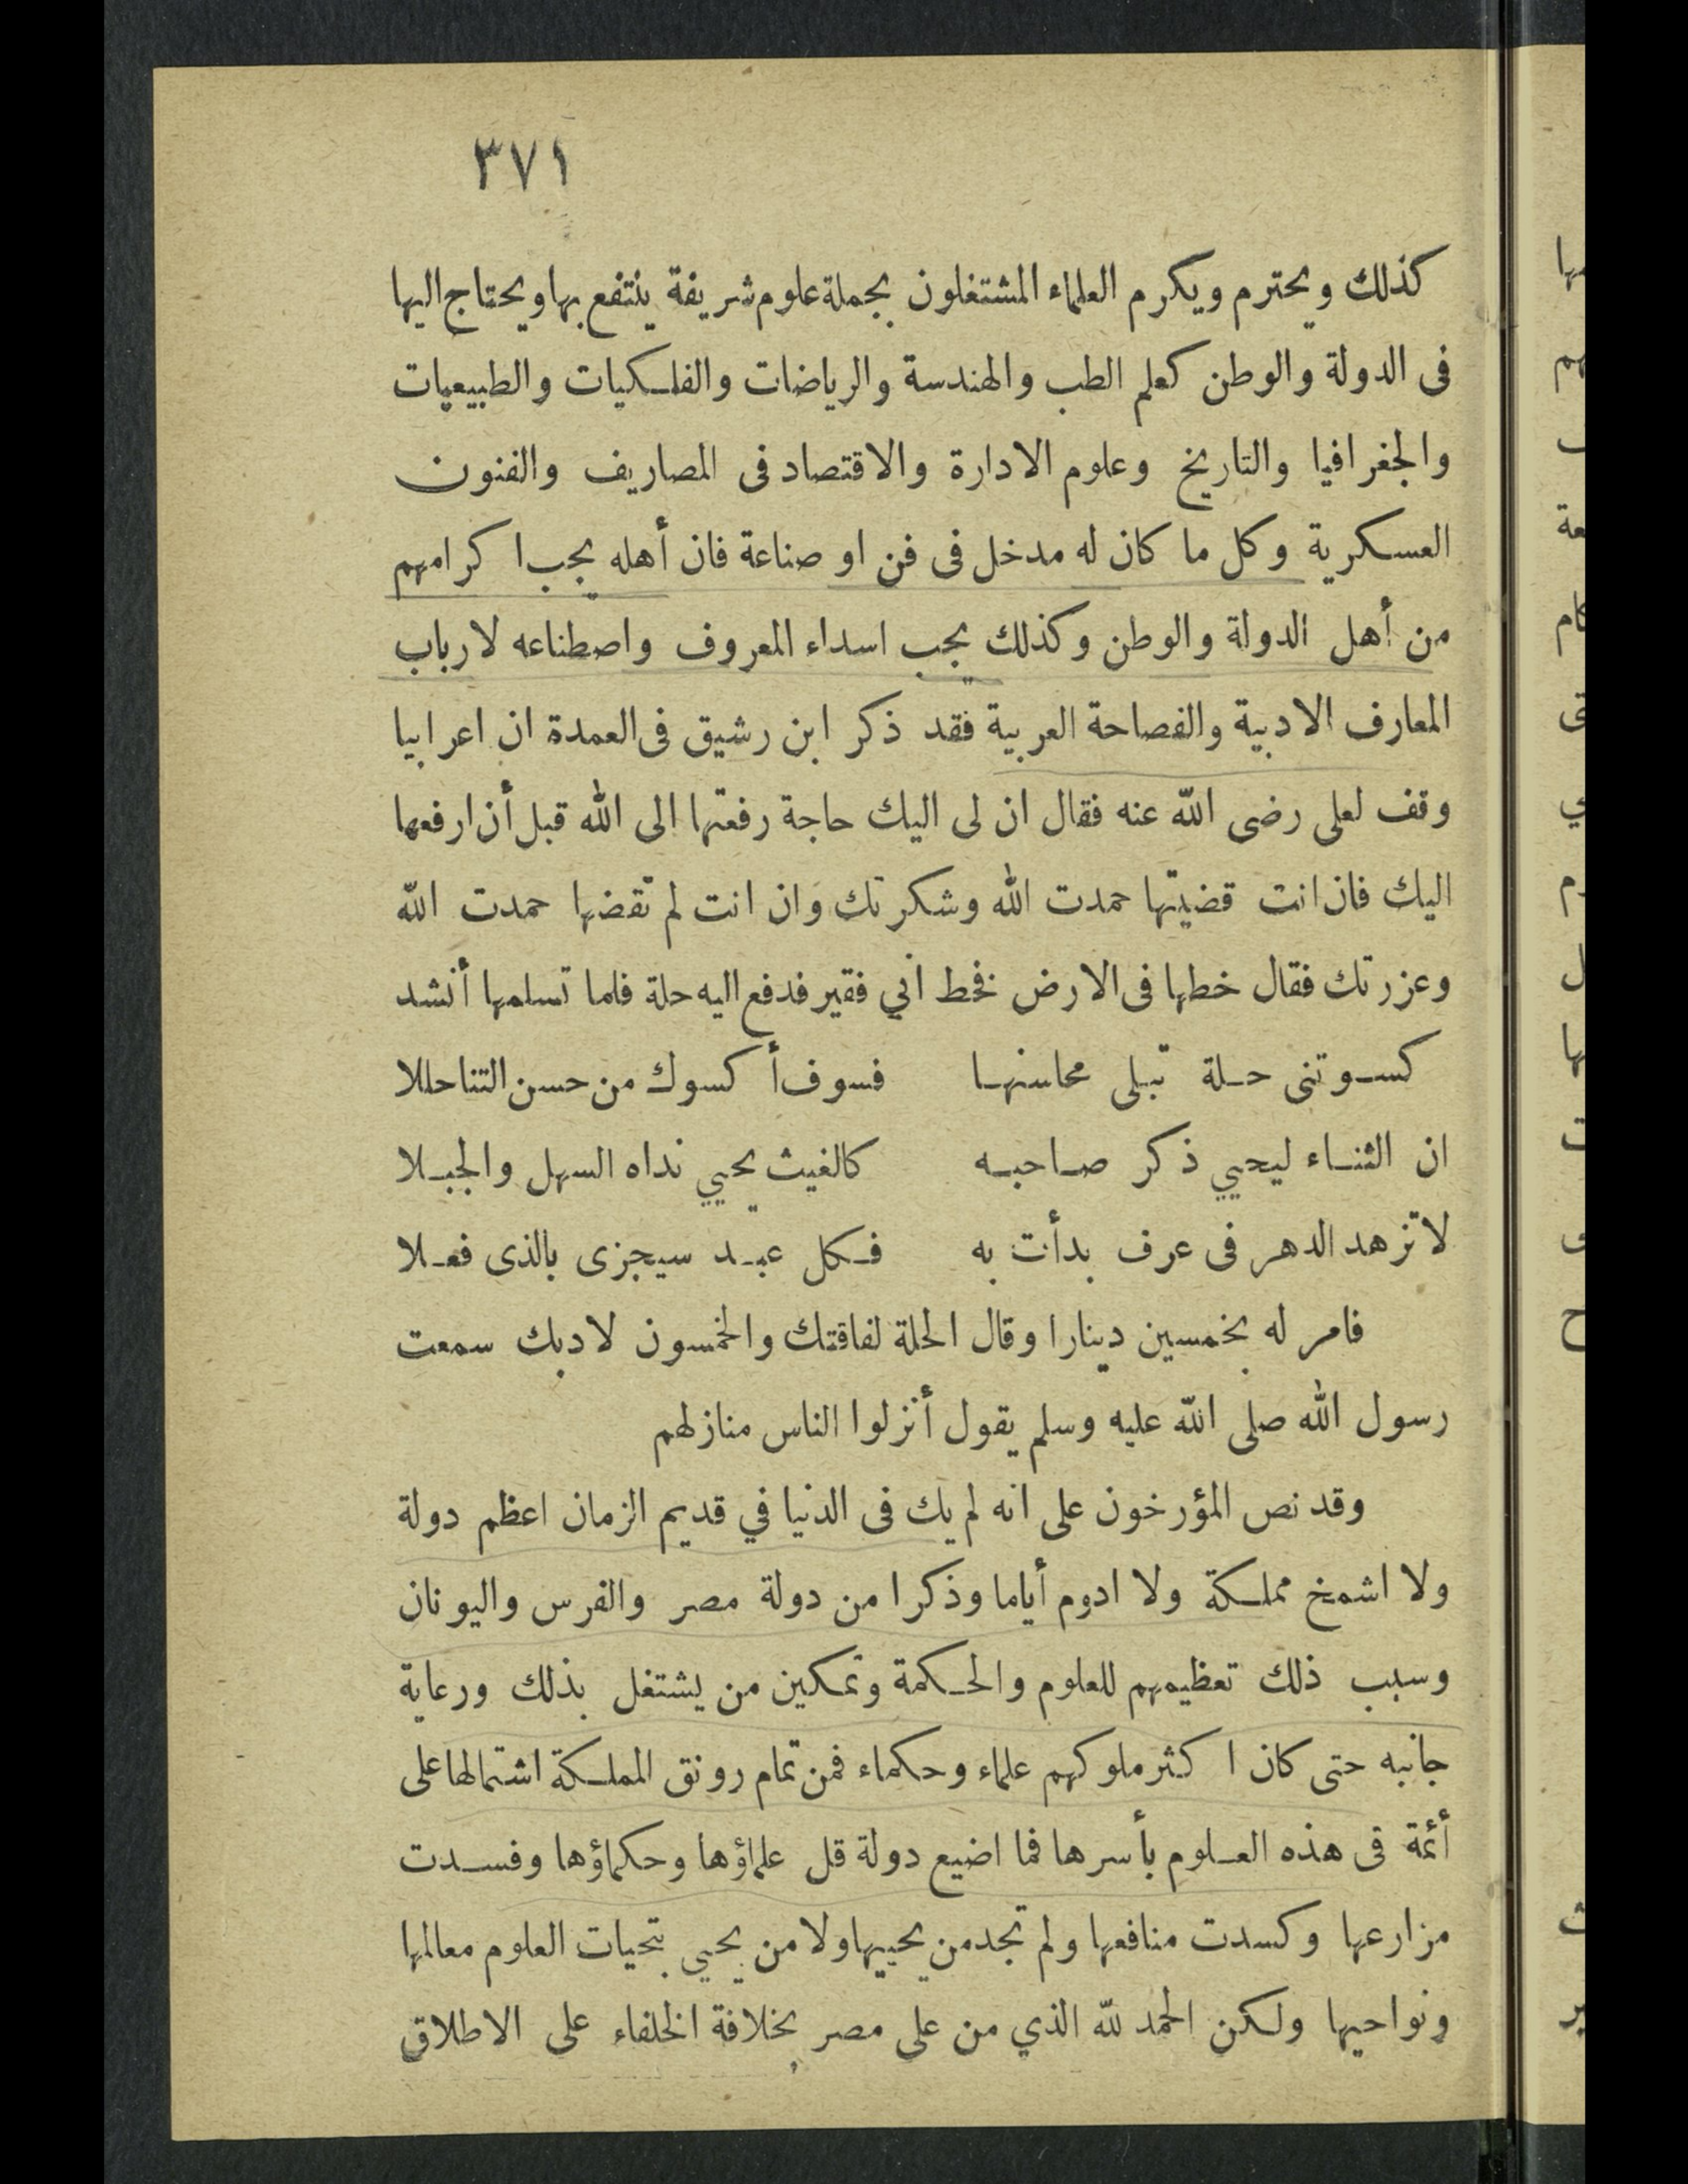 ٣٧١
كذلك ويحترم ويكرم العلماء المشتغلون بجملة علوم شريفة ينتفع بها ويحتاج اليها
فى الدولة والوطن كعلم الطب والهندسة والرياضات والفلكيات والطبيعيات
والجغرافيا والتاريخ وعلوم الادارة والاقتصاد فى المصاريف والفنون
العسكرية وكل ما كان له مدخل فى فن او صناعة فان أهله يجب اكرامهم
من أهل الدولة والوطن وكذلك يجب اسداء المعروف واصطناعه لارباب
المعارف الادبية والفصاحة العربية فقد ذكر ابن رشيق فى العمدة ان اعرابيا
وقف لعلى رضى الله عنه فقال ان لى اليك حاجة رفعتها الى الله قبل أن ارفعها
اليك فان انت قضيتها حمدت الله وشكرتك وان انت لم تقضها حمدت الله
وعزرتك فقال خطها فى الارض فخط انى فقير فدفع اليه حلة فلما تسلمها أنشد
كسوتنى حلة تبلى محاسنها فسوف أكسوك من حسن الثنا حللا
ان الثناء ليحيي ذكر صاحبه كالغيث يحيي نداه السهل والجبلا
لا تزهد الدهر فى عرف بدأت به فكل عبد سيجزى بالذى فعلا
فامر له بخمسين دينارا وقال الحلة لفاقتك والخمسون لادبك سمعت
رسول الله صلى الله عليه وسلم يقول أنزلوا الناس منازلهم
وقد نص المؤرخون على انه لم يك فى الدنيا في قديم الزمان اعظم دولة
ولا اشمخ مملكة ولا ادوم أياما وذكرا من دولة مصر والفرس واليونان
وسبب ذلك تعظيمهم للعلوم والحكمة وتمكين من يشتغل بذلك ورعاية
جانبه حتى كان اكثر ملوكهم علماء وحكماء فمن تمام رونق المملكة اشتمالها على
أئمة فى هذه العلوم بأسرها فما اضيع دولة قل علماؤها وحكماؤها وفسدت
مزارعها وكسدت منافعها ولم تجد من يحييها ولا من يحيي بتحيات العلوم معالمها
ونواحيها ولكن الحمد لله الذي من على مصر بخلافة الخلفاء على الاطلاق